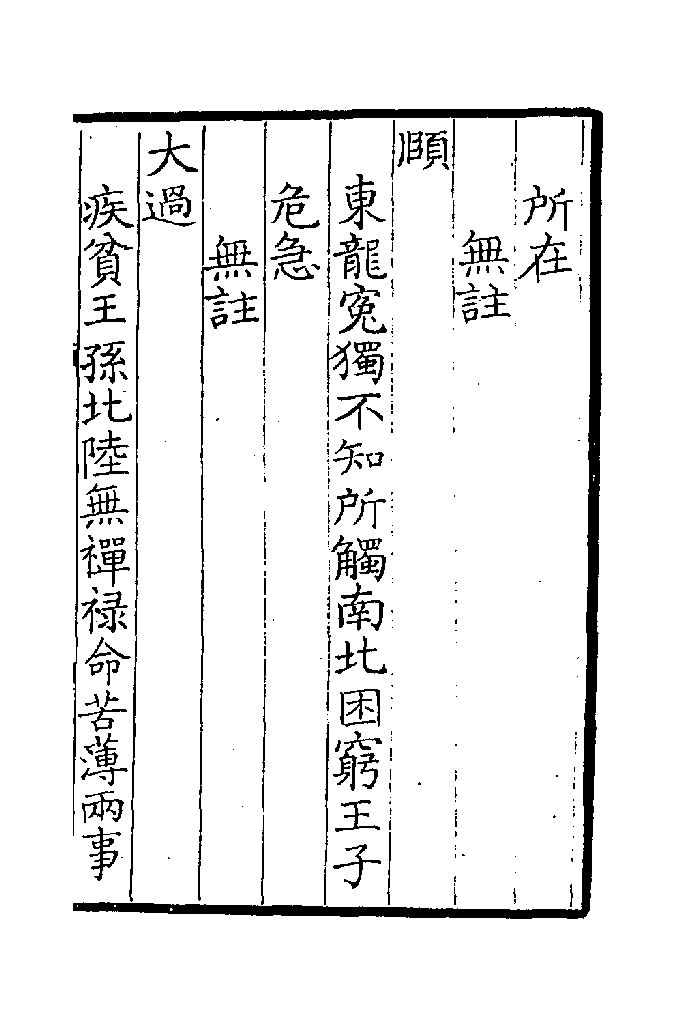 所在
無註
頤
東龍寃獨不知所觸南北困窮王子
危急
無註
大過
疾貧王孫北陸無襌禄命苦薄兩事